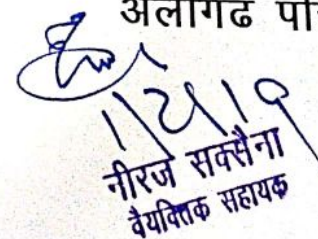 अलीगढ़ परि
नीरज सक्सैना
वैयक्तिक सहायक